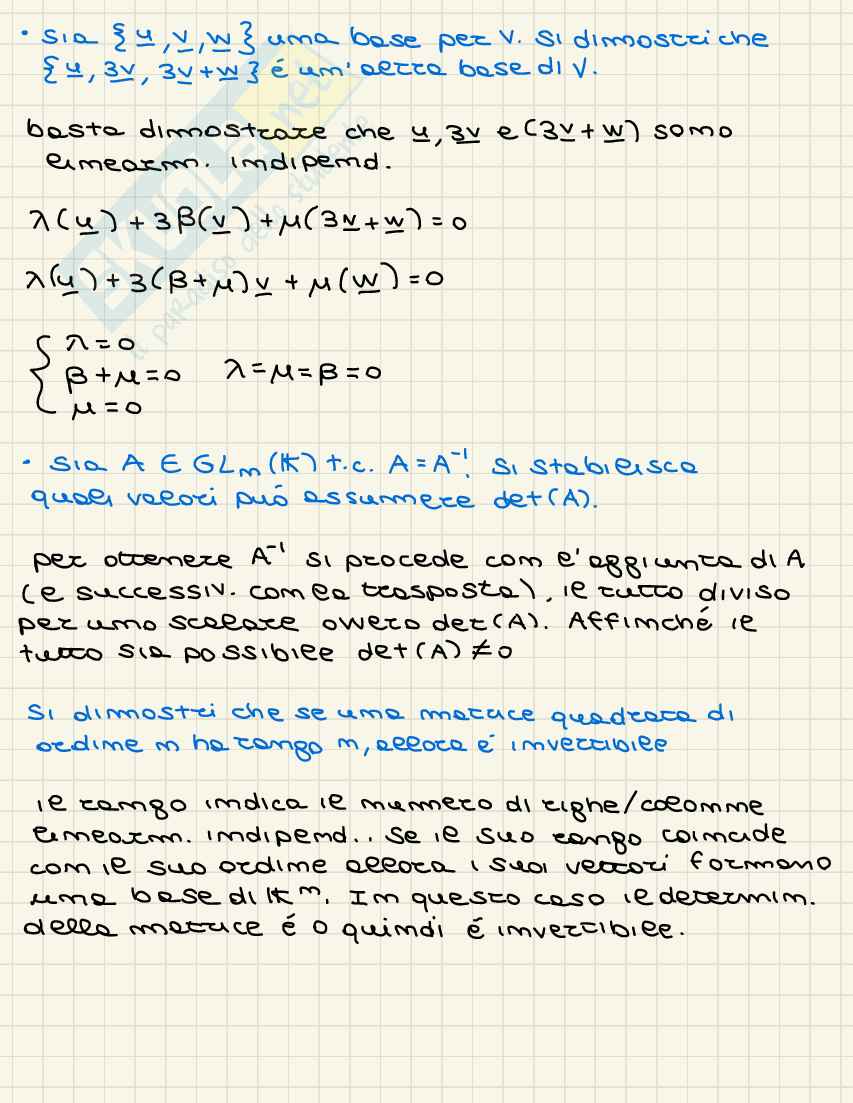 • Sia {u, v, w} una base per V. Si dimostri che
{u, 3v, 3v+w} é un'altra base di V.
basta dimostrare che u, 3v e (3v+w) sono
linearm. indipend.
λ(u) + 3β(v) + μ(3v+w) = 0
λ(u) + 3(β+μ)v + μ(w) = 0
{ λ=0
β+μ=0 λ=μ=β=0
μ=0
• Sia A ∈ GLn(K) t.c. A=A⁻¹. Si stabilisca
quali valori puó assumere det(A).
per ottenere A⁻¹ si procede con l'aggiunta di A
(e successiv. con la trasposta), il tutto diviso
per uno scalare ovvero det(A). Affinché il
tutto sia possibile det(A) ≠ 0
Si dimostri che se una matrice quadrata di
ordine n ha rango n, allora é invertibile
il rango indica il numero di righe/colonne
linearm. indipend.. Se il suo rango coincide
con il suo ordine allora i suoi vettori formano
una base di Kⁿ. In questo caso il determin.
della matrice é 0 quindi é invertibile.
EKUALE.net
il paradiso dello studente